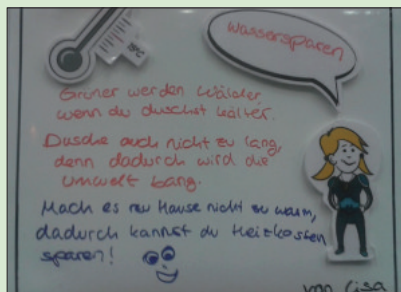 wassersparen
Grüner werden Wälder,
wenn du duschst kälter.
Dusche auch nicht zu lang,
denn dadurch wird die
Umwelt bang.
Mach es zu Hause nicht zu warm,
dadurch kannst du Heizkosten
sparen!
von Lisa